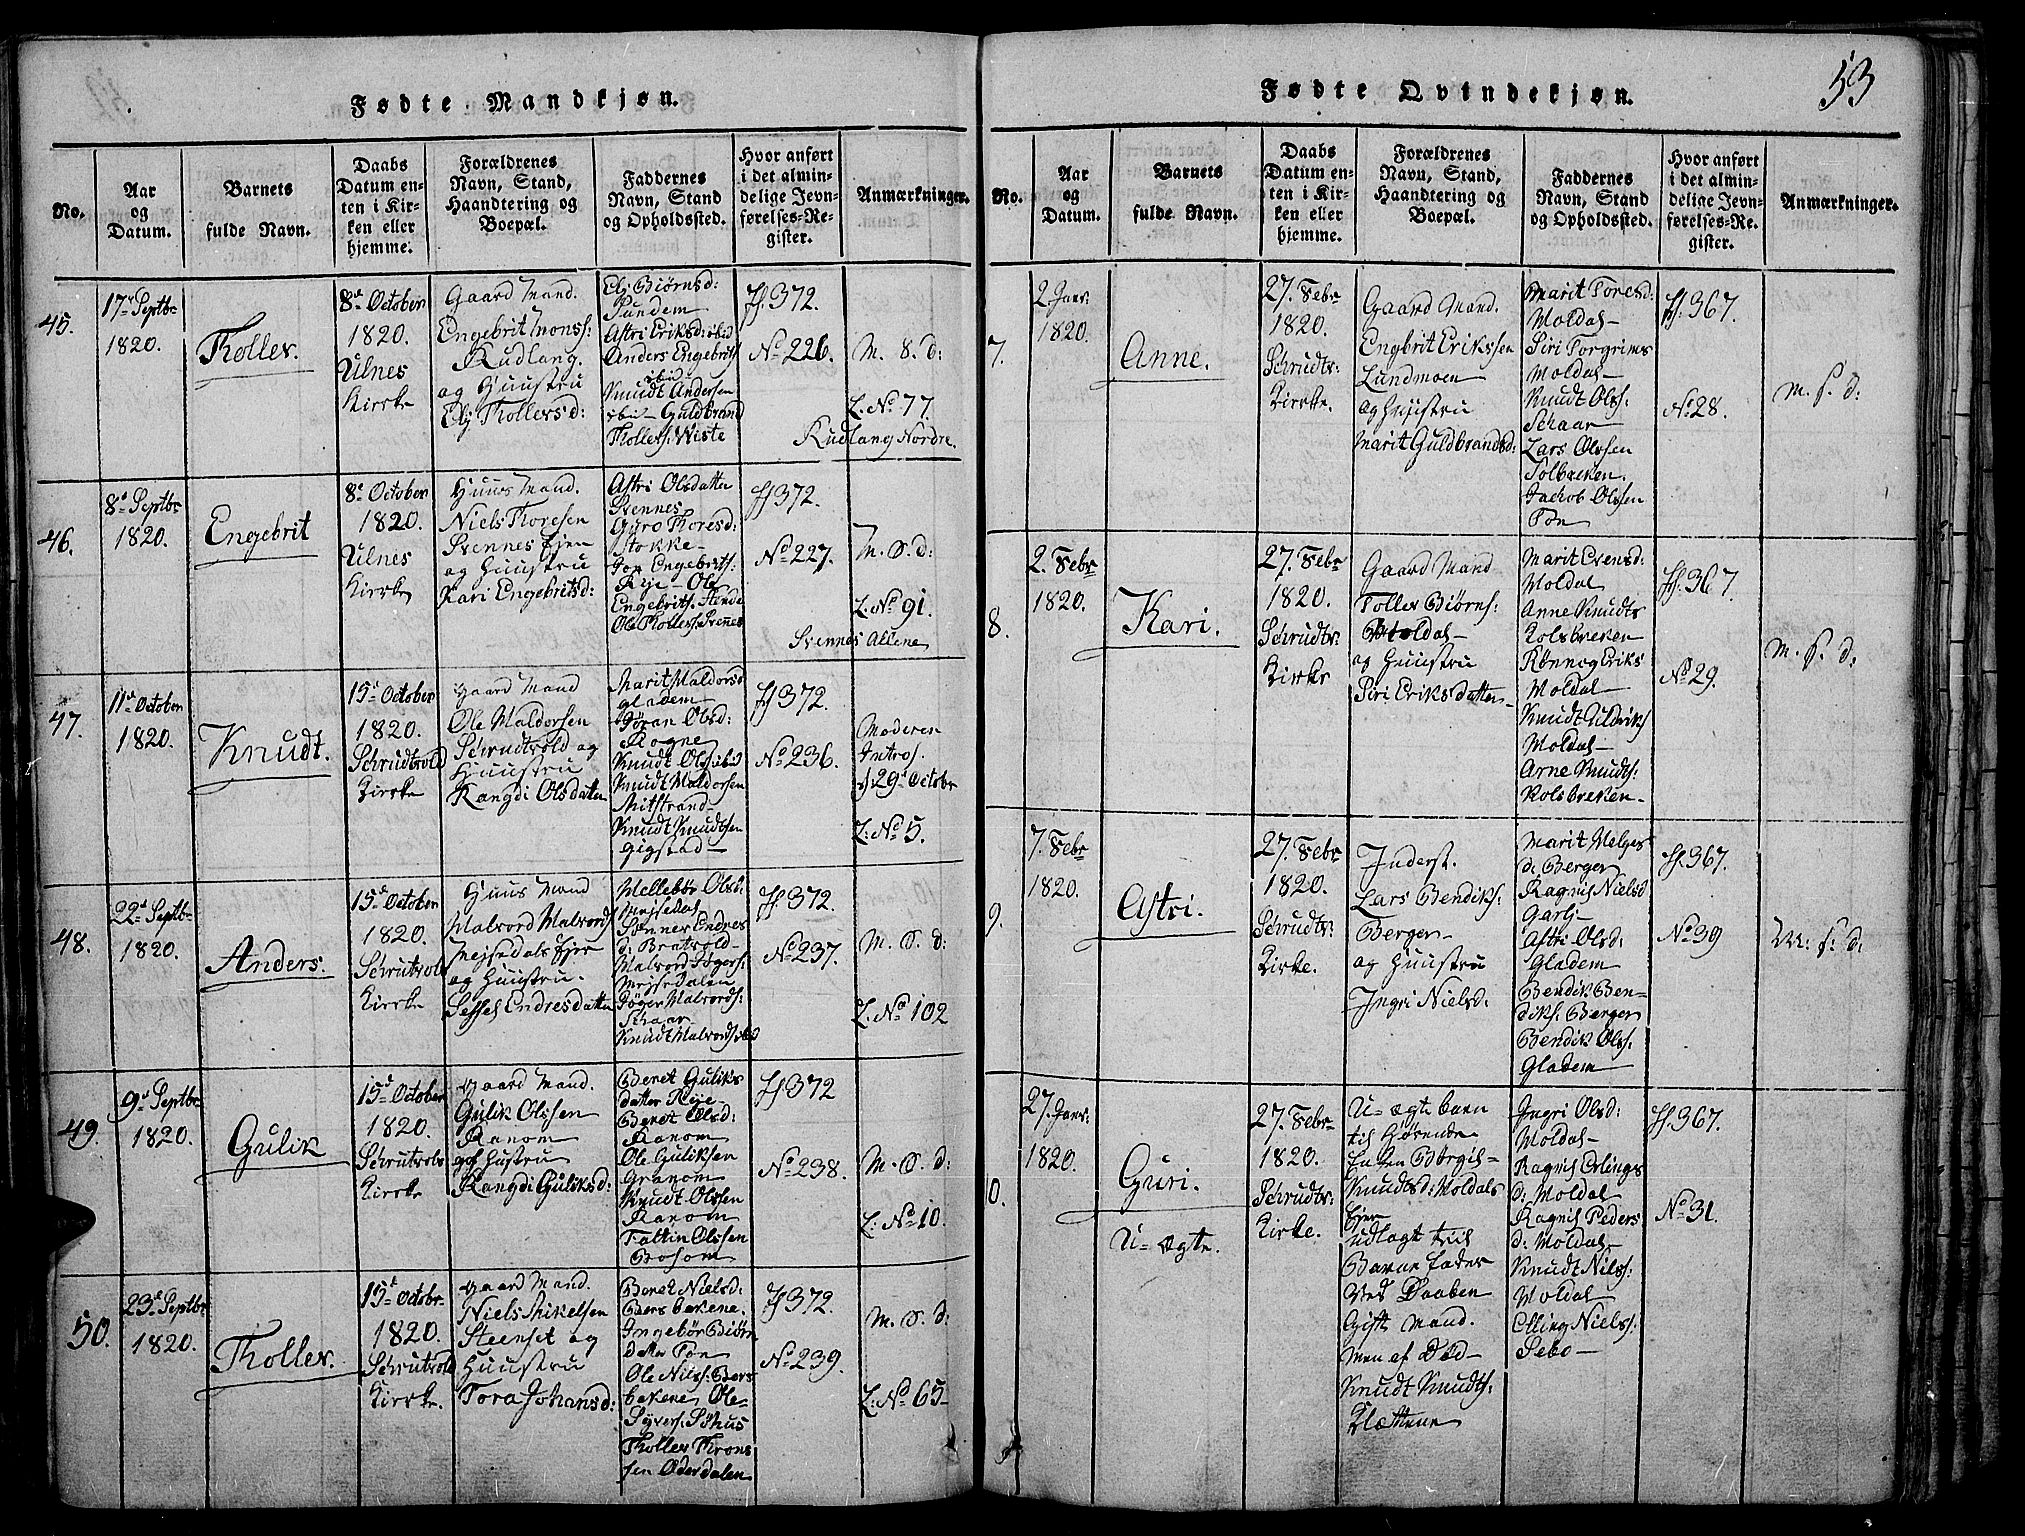 53
Fødte Mandkjøn.
No.
Aar
og
Datum.
Barnets
fulde Navn.
Daabs
Datum en-
ten i Kir-
ken eller
hjemme.
Forældrenes
Navn, Stand,
Haandtering og
Boepæl.
Faddernes
Navn, Stand
og Opholdssted.
Hvor anført
i det almin-
delige Jevn-
førelses-Re-
gister.
Anmærkninger.
45.
17de Septbr
1820.
Tholler.
8de October
1820.
Ulnes
Kirke
Gaard Mand.
Engebrit Mons:
Rudlang
og Huustru
Elj Thollersd:
Elj Biørnsd:
Sundem
Astri Eriksd: ibid
Anders Engebritss
ibid
Knudt Andersen
ibid Guldbrand
Thollers: Wiste
ff 372.
No 226.
M. S. d:
L. No 77.
Rudlang Nordre.
46.
8de Septbr
1820.
Engebrit
8de October
1820.
Ulnes
Kirke
Huus Mand.
Niels Thoresen
Svennes Ejen
og Huustru
Kari Engebritsd:
Astri Olsdatter
Svennes
Guro Thoresd:
Stokke
Engebrits:
Reje - Ole
Engebrits: Stende
Ole Thollers: Svenes
ff 372.
No 227.
M. S. d:
L. No 91.
Svennes Allene
47.
11de October
1820.
Knudt.
15de October
1820.
Schrudtvold
Kirke
Gaard Mand
Ole Maldorsen
Schrudtvold og
Huustru
Rangdi Olsdatter
Marit Maldorsd
Gladem
Jøran Olsd:
Rogne
Knudt Ols: ibid
Knudt Maldorsen
Mitstrand
Knudt Knudtsen
Gigstad
ff 372.
No 236.
Moderen
Introd.
d. 29de October
L: No 5.
48.
22de Septbr
1820.
Anders.
15de October
1820.
Schrutvols
Kirke
Huus Mand
Malvord Malvords
Mejsedals Ejer
og Huustru
Sessel Endresdatter
Mellebør Olsd:
Mejsedal
Sønnev Endres
d: Bratvold
Malvord Tøgers:
Mejsedalen
Tøger Malvords:
Schaar
Knudt Malvords: ibid
ff 372.
No 237.
M. S. d:
L: No 102
49.
9de Septbr
1820.
Gulik
15de October
1820.
Schrutvols
Kirke
Gaard Mand.
Gulik Olssen
Ranom
og Hustru
Rangdi Guliksd:
Beret Guliks
datter Reje
Beret Olsd:
Ranom
Ole Guliksen
Granom
Knudt Olssen
Ranom
Tattin Olssen
Bosom
ff 372
No 238.
M. S. d:
L: No 10.
50.
23de Septbr
1820.
Tholler.
15de Octobr.
1820.
Schrutvold
Kirke.
Gaard Mand.
Niels Mikelsen
Steenset og
Huustru
Tora Johansd:
Beret Nielsd:
Bersbekene.
Ingebør Biørn
datter Tøn
Ole Nils: Bers
bekene Ole
Syvers: Søhus
Tholler Throns
sen Oderdalen
ff 372.
No 239.
M. S. d:
L: No 65
Fødte Qvindekjøn.
No.
Aar
og
Datum.
Barnets
fulde Navn.
Daabs
Datum en-
ten i Kir-
ken eller
hjemme.
Forældrenes
Navn, Stand,
Haandtering og
Boepæl.
Faddernes
Navn, Stand
og Opholdssted.
Hvor anført
i det almin-
delige Jevn-
førelses-Re-
gister.
Anmærkninger.
7.
2. Janr:
1820.
Anne.
27. Febr
1820.
Schrudts:
Kirke.
Gaard Mand.
Engbrit Erikssen
Lundmoen
og Huustru
Marit Guldbrandsd:
Marit Toresd:
Moldal
Siri Torgrims
Moldal
Knudt Ols:
Schaar
Lars Olssen
Tolbreken.
Jachob Olssen
Tøn
ff: 367.
No 28.
M. S. d:
8.
2. Febr
1820.
Kari.
27. Febr
1820.
Schrudts:
Kirke
Gaard Mand
Toller Biørns:
Moldal
og Huustru
Siri Eriksdatter
Marit Evensd:
Moldal
Anne Knudts
Kolsbreken
Rønnog Eriks
Moldal
Knudt Uldriks
Moldal
Arne Knudts:
Kolsbreken
ff: 367.
No 29.
M. S. d:
9.
7. Febr
1820.
Astri.
27. Febr
1820.
Schrudts:
Kirke.
Inderst.
Lars Bendiks:
Berger
og Huustru
Ingri Nielsd:
Marit Helges
d: Berger
Ragnil Nielsd
Garli
Astri Olsd:
Gladem
Bendik Ben=
diks: Berger
Bendik Ols:
Gladem
ff 367.
No 39
M: S: d:
0.
27. Janr:
1820.
Guri.
U=ægte.
27. Febr
1820.
Schrudts:
Kirke.
U=ægte barn
til hørende
Enken Børgil=
Knudtsd: Moldals
Ejer
udlagt til
Barne fader
ved Daaben
Gift Mand.
men af Død
Knudt Knudts:
Klættene
Ingri Olsd:
Moldal
Ragnil Erlings
d: Moldal
Ragnil Peders
d: Moldal
Knudt Nils:
Moldal
Elling Niels:
Sebo
ff 367.
No 31.